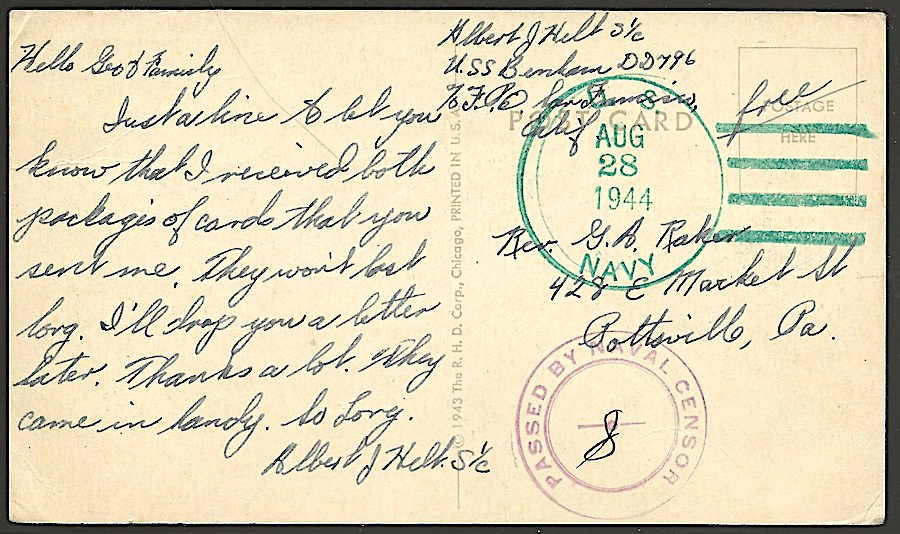 Hello Geo & Family
Just a line to let you
know that I received both
packages of cards that you
sent me. They won't last
long. I'll drop you a letter
later. Thanks a lot. They
came in handy. So Long.
Albert J Helt. S1/c
© 1943 The R. H. D. Corp., Chicago, PRINTED IN U.S.A.
Albert J Helt S1/c
USS Benham DD796
F.P.O. San Francisco,
Calif
POST CARD
U S
AUG
28
1944
NAVY
free
POSTAGE
HERE
Rev. G. A. Raker
428 E Market St
Pottsville, Pa.
PASSED BY NAVAL CENSOR